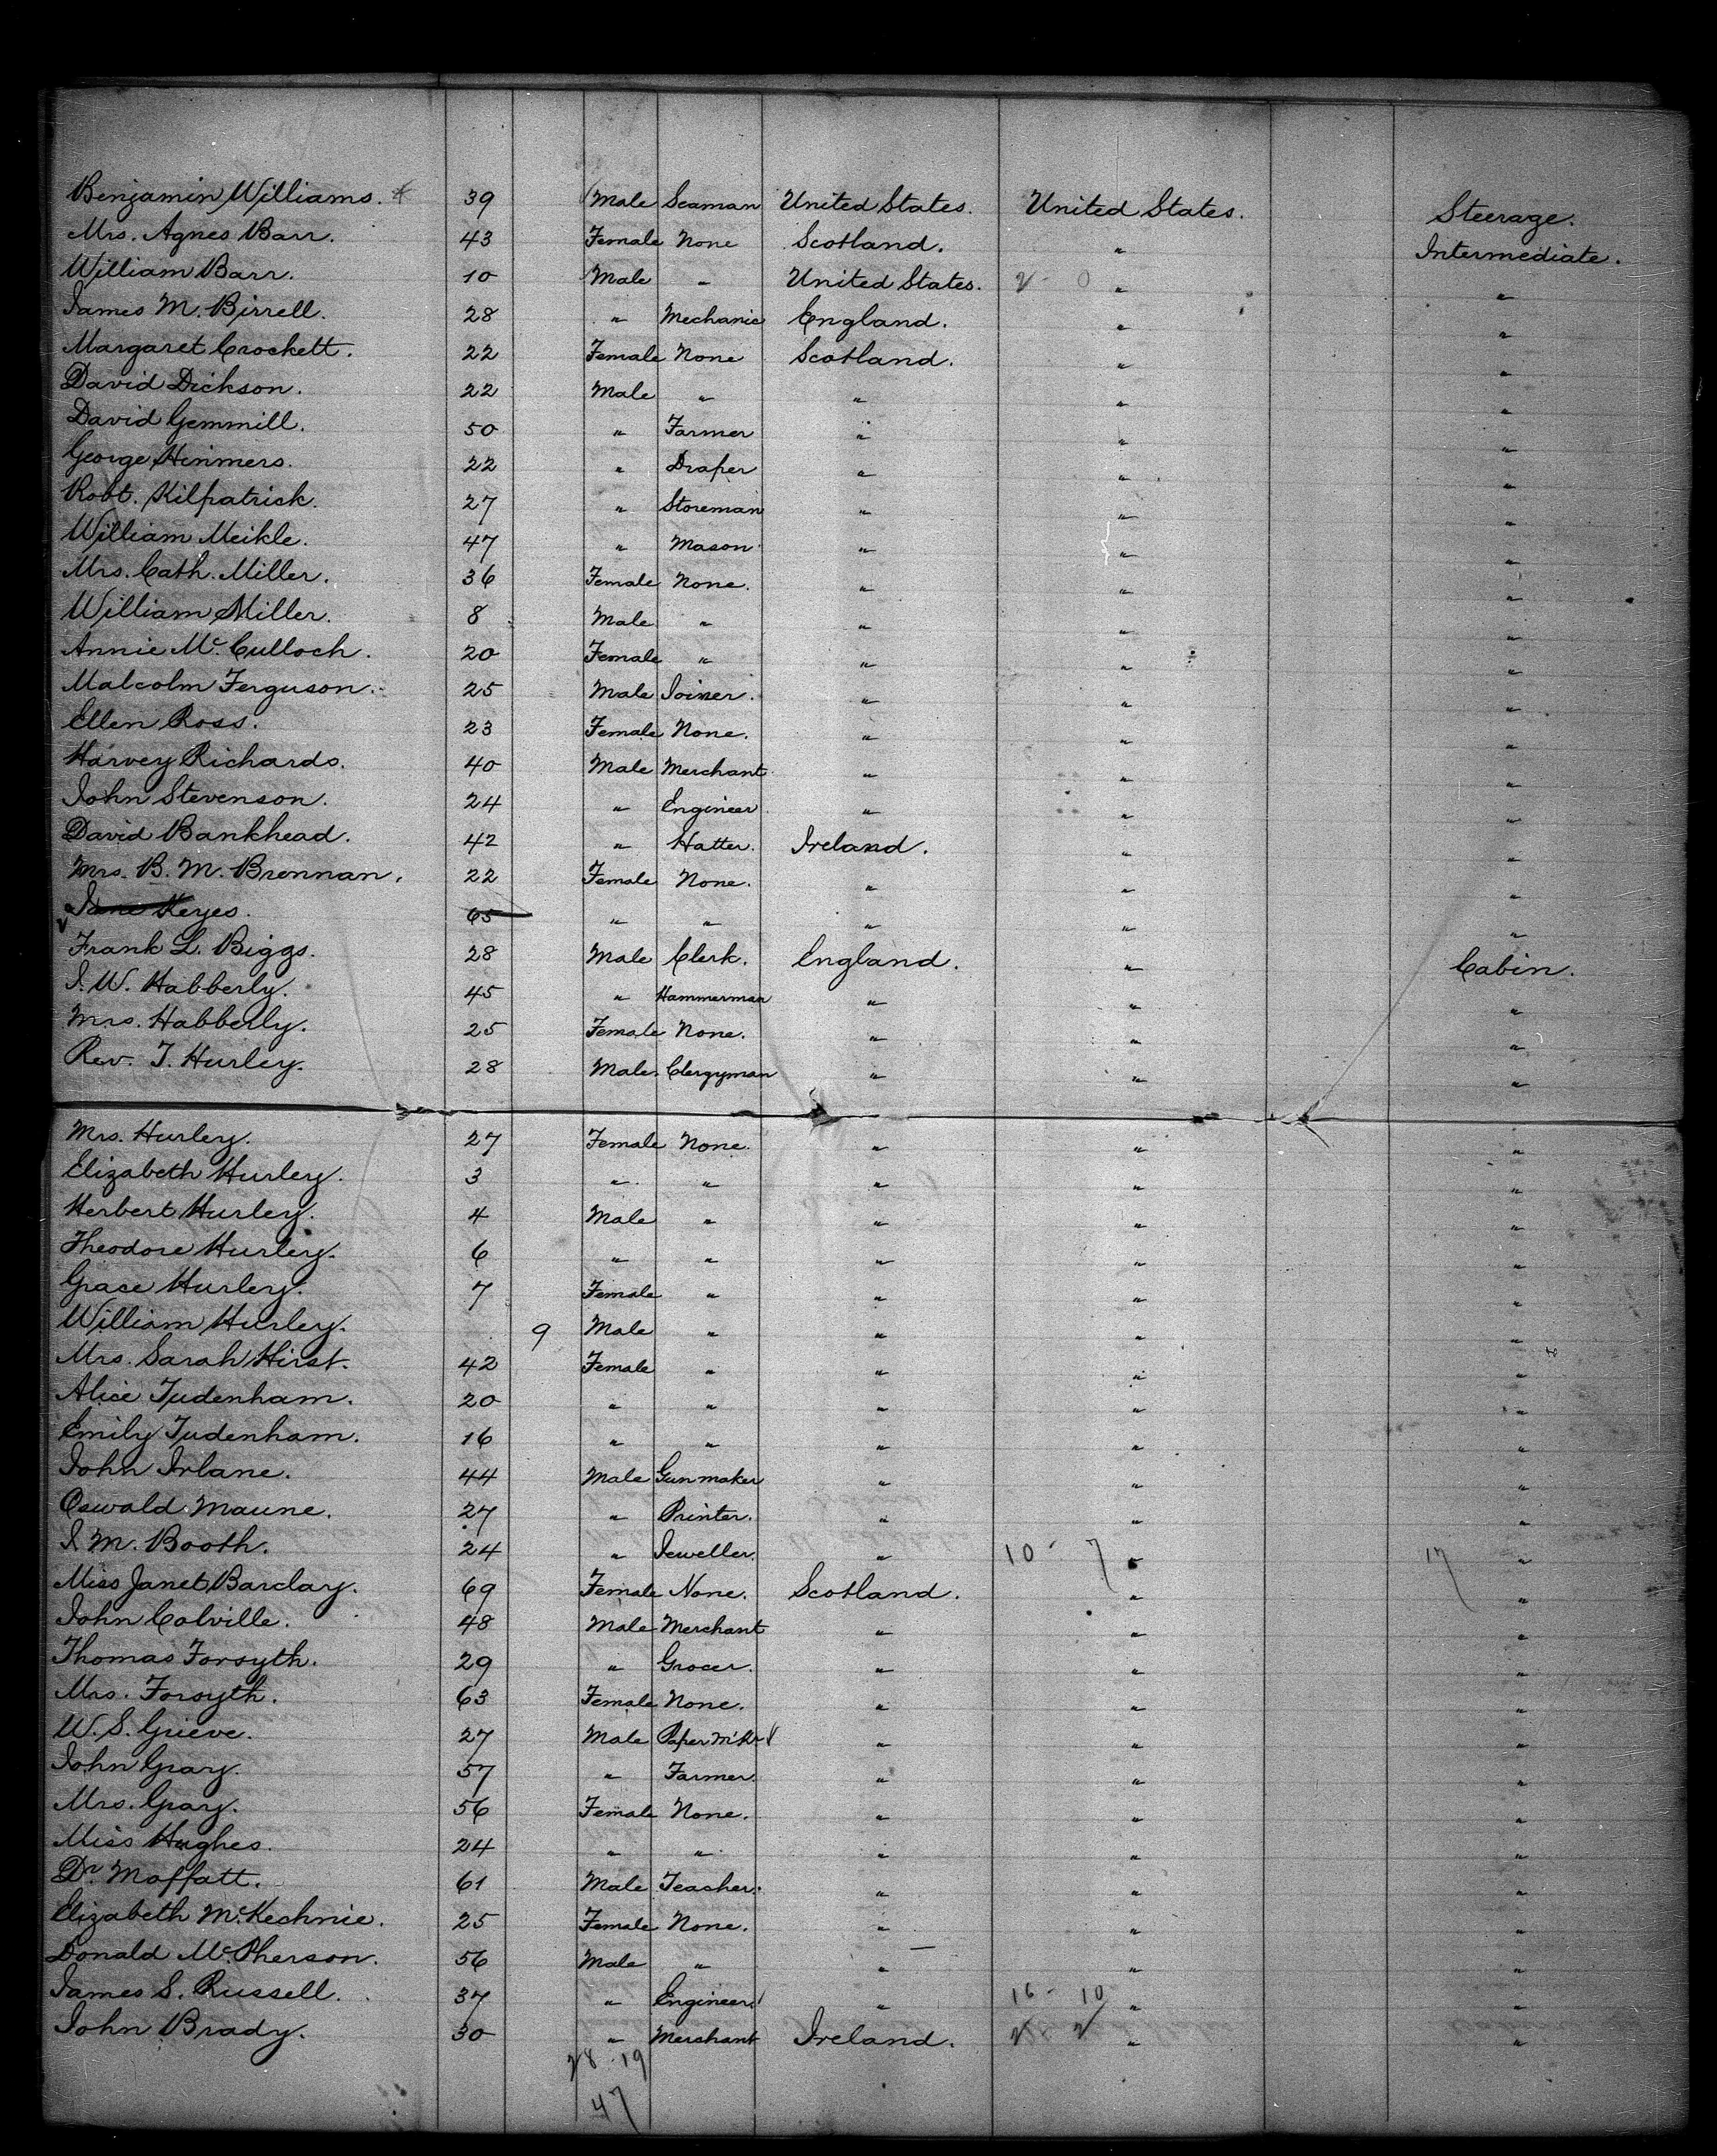 Benjamin Williams. 39 Male Seaman United States. United States. Steerage.
Mrs. Agnes Barr. 43 Female None Scotland. " Intermediate.
William Barr. 10 Male " United States. 2 - 0 " "
James M. Birrell. 28 " Mechanic England. " "
Margaret Crockett. 22 Female None Scotland. " "
David Dickson. 22 Male " " " "
David Gemmill. 50 " Farmer " " "
George Hinmers. 22 " Draper " " "
Robt. Kilpatrick. 27 " Storeman " " "
William Meikle. 47 " Mason " " "
Mrs. Cath. Miller. 36 Female None. " " "
William Miller. 8 Male " " " "
Annie McCulloch. 20 Female " " " "
Malcolm Ferguson. 25 Male Joiner. " " "
Ellen Ross. 23 Female None. " " "
Harvey Richards. 40 Male Merchant. " " "
John Stevenson. 24 " Engineer " " "
David Bankhead. 42 " Hatter. Ireland. " "
Mrs. B. M. Brennan. 22 Female None. " " "
Jane Keyes. 65 " " " " "
Frank L. Biggs. 28 Male Clerk. England. " Cabin.
J. W. Habberly. 45 " Hammerman " " "
Mrs. Habberly. 25 Female None. " " "
Rev. T. Hurley. 28 Male. Clergyman " " "
Mrs. Hurley. 27 Female None. " " "
Elizabeth Hurley. 3 " " " " "
Herbert Hurley. 4 Male " " " "
Theodore Hurley. 6 " " " " "
Grace Hurley. 7 Female " " " "
William Hurley. 9 Male " " " "
Mrs. Sarah Hirst. 42 Female " " " "
Alice Tudenham. 20 " " " " "
Emily Tudenham. 16 " " " " "
John Irlane. 44 Male Gunmaker " " "
Oswald Maune. 27 " Printer. " " "
J. M. Booth. 24 " Jeweller. " 10 - 7 " 17 "
Miss Janet Barclay. 69 Female None. Scotland. " "
John Colville. 48 Male Merchant " " "
Thomas Forsyth. 29 " Grocer. " " "
Mrs. Forsyth. 63 Female None. " " "
W. S. Grieve. 27 Male Paper M'kr " " "
John Gray. 57 " Farmer. " " "
Mrs. Gray. 56 Female None. " " "
Miss Hughes. 24 " " " " "
Dr Moffatt. 61 Male Teacher. " " "
Elizabeth McKechnie. 25 Female None. " " "
Donald McPherson. 56 Male " " " "
James S. Russell. 37 " Engineer. " 16 - 10 " "
John Brady. 30 " Merchant Ireland. 2 2 " "
28 - 19
47